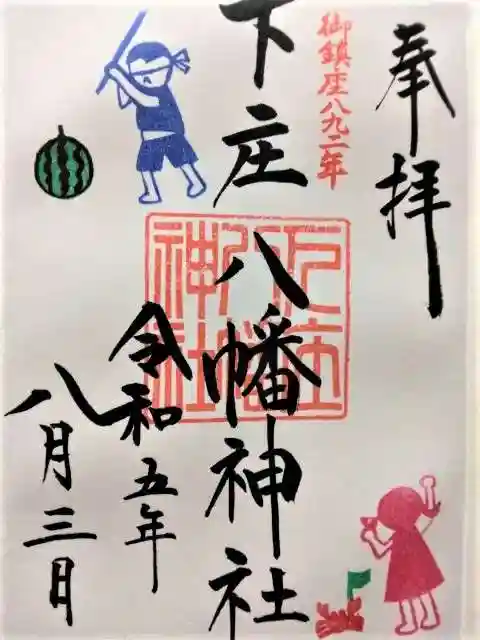 奉拝
御鎮座八九二年
下庄八幡神社
下庄八幡神社
令和五年
八月三日